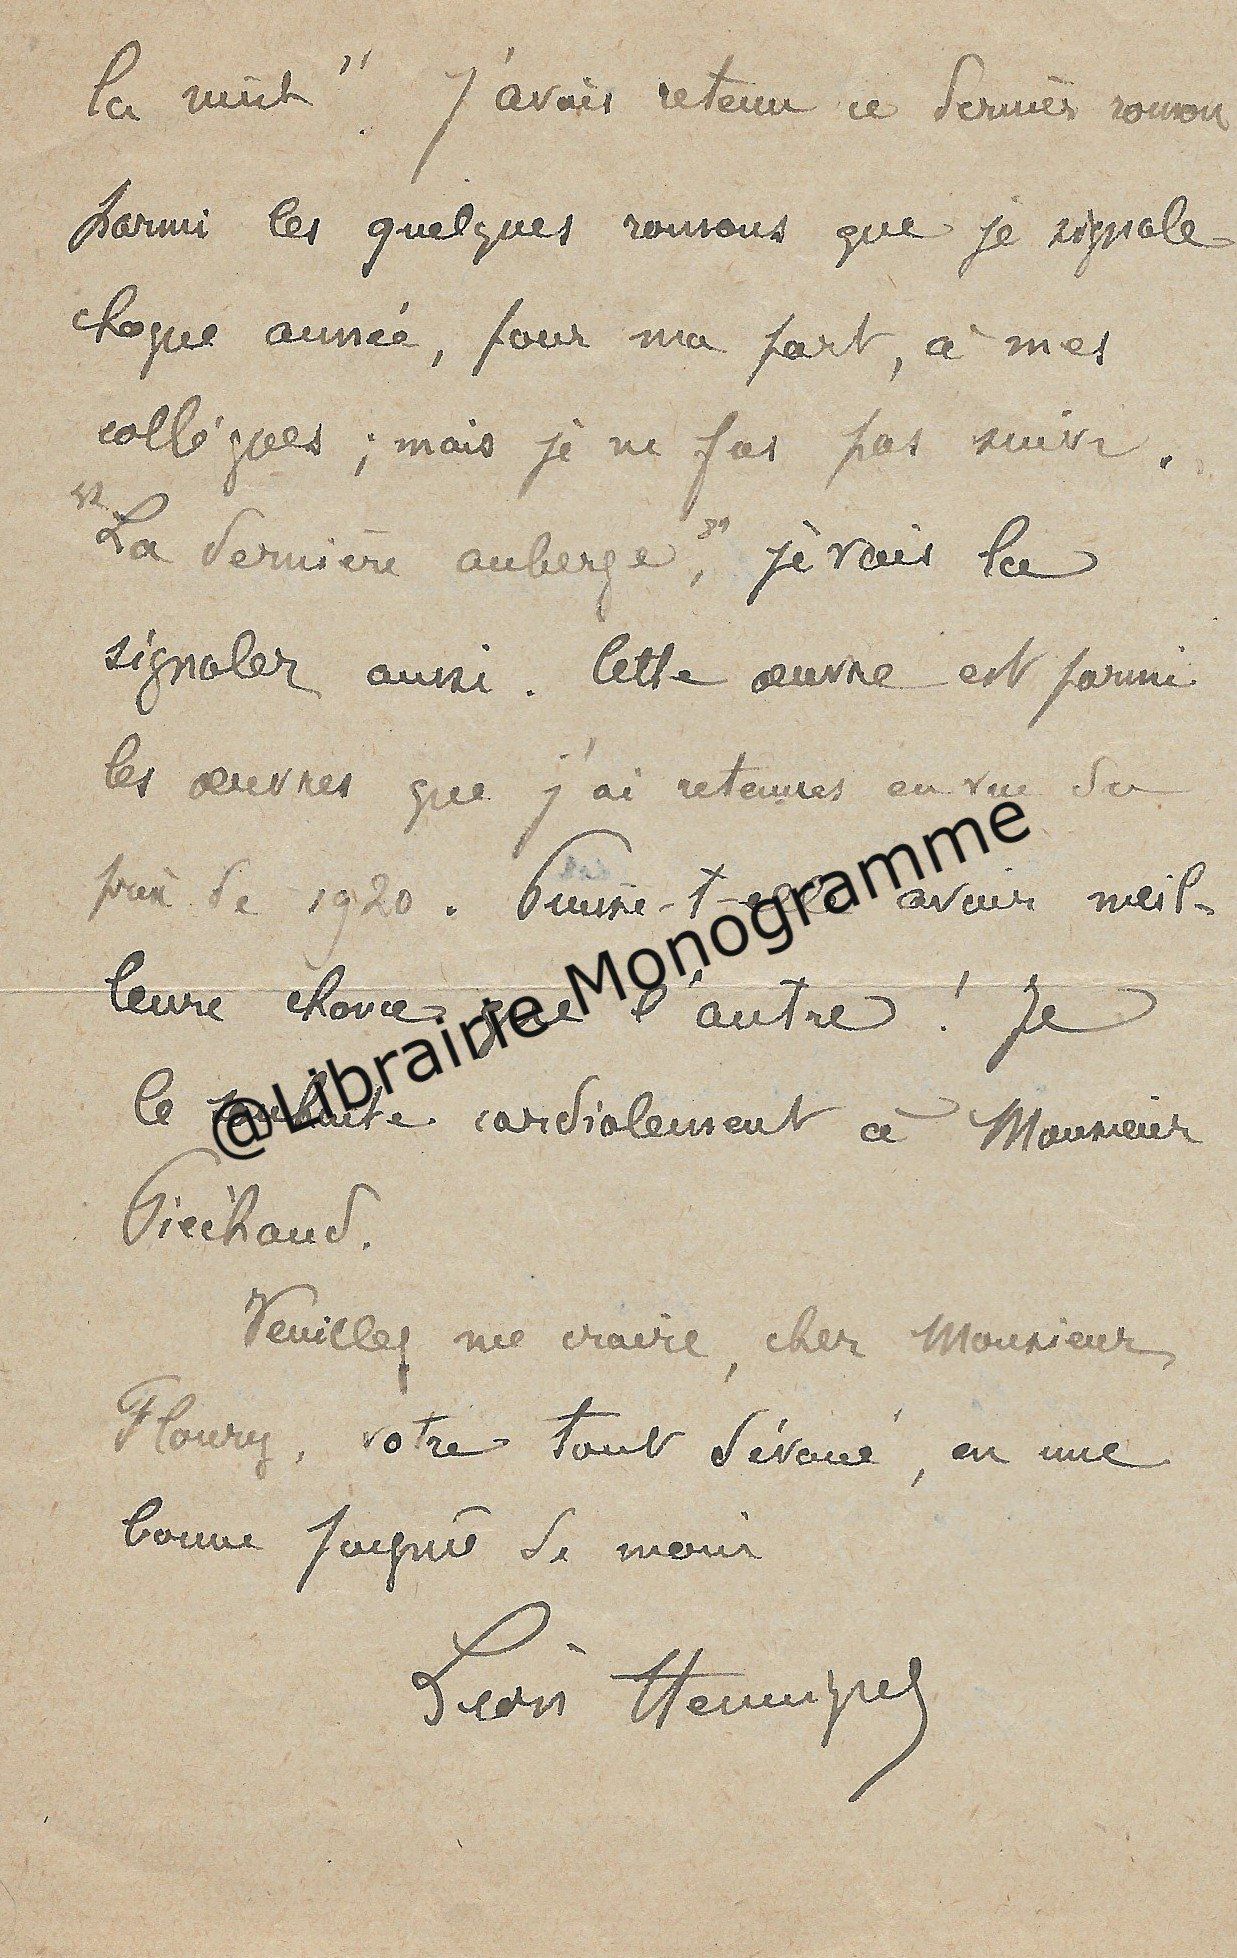 la nuit". J'avais retenu ce dernier roman
parmi les quelques romans que je signale
chaque année, pour ma part, à mes
collègues ; mais je ne fus pas suivi.
"La dernière auberge", je vais la
signaler aussi. Cette œuvre est parmi
les œuvres que j'ai retenues en vue du
prix de 1920. Puisse-t-elle avoir meil-
leure chance que l'autre ! Je
le souhaite cordialement à Monsieur
Piéchaud.
Veuillez me croire, cher Monsieur
Floury, votre tout dévoué, en une
bonne poignée de main
Léon Hennique
@Librairie Monogramme